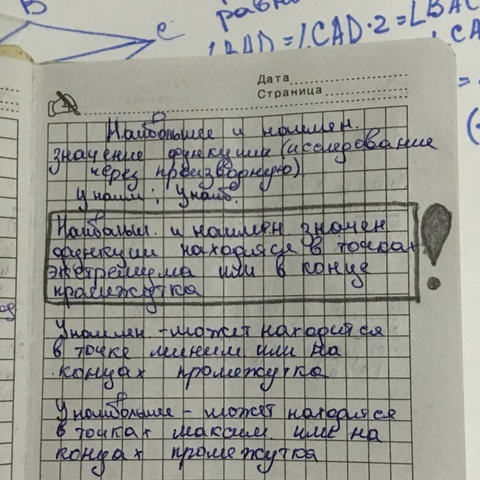 B
C
равн
∠BAD=∠CAD·2=∠BAC
Дата
Страница
Наибольшее и наимен.
значение функции (исследование
через производную)
y наим ; y наиб.
Наибольш. и наимен значен
функции находится в точках
экстремума или в конце
промежутка
y наимен - может находится
в точке миним или на
концах промежутка
y наибольше - может находится
в точках максим или на
концах промежутка